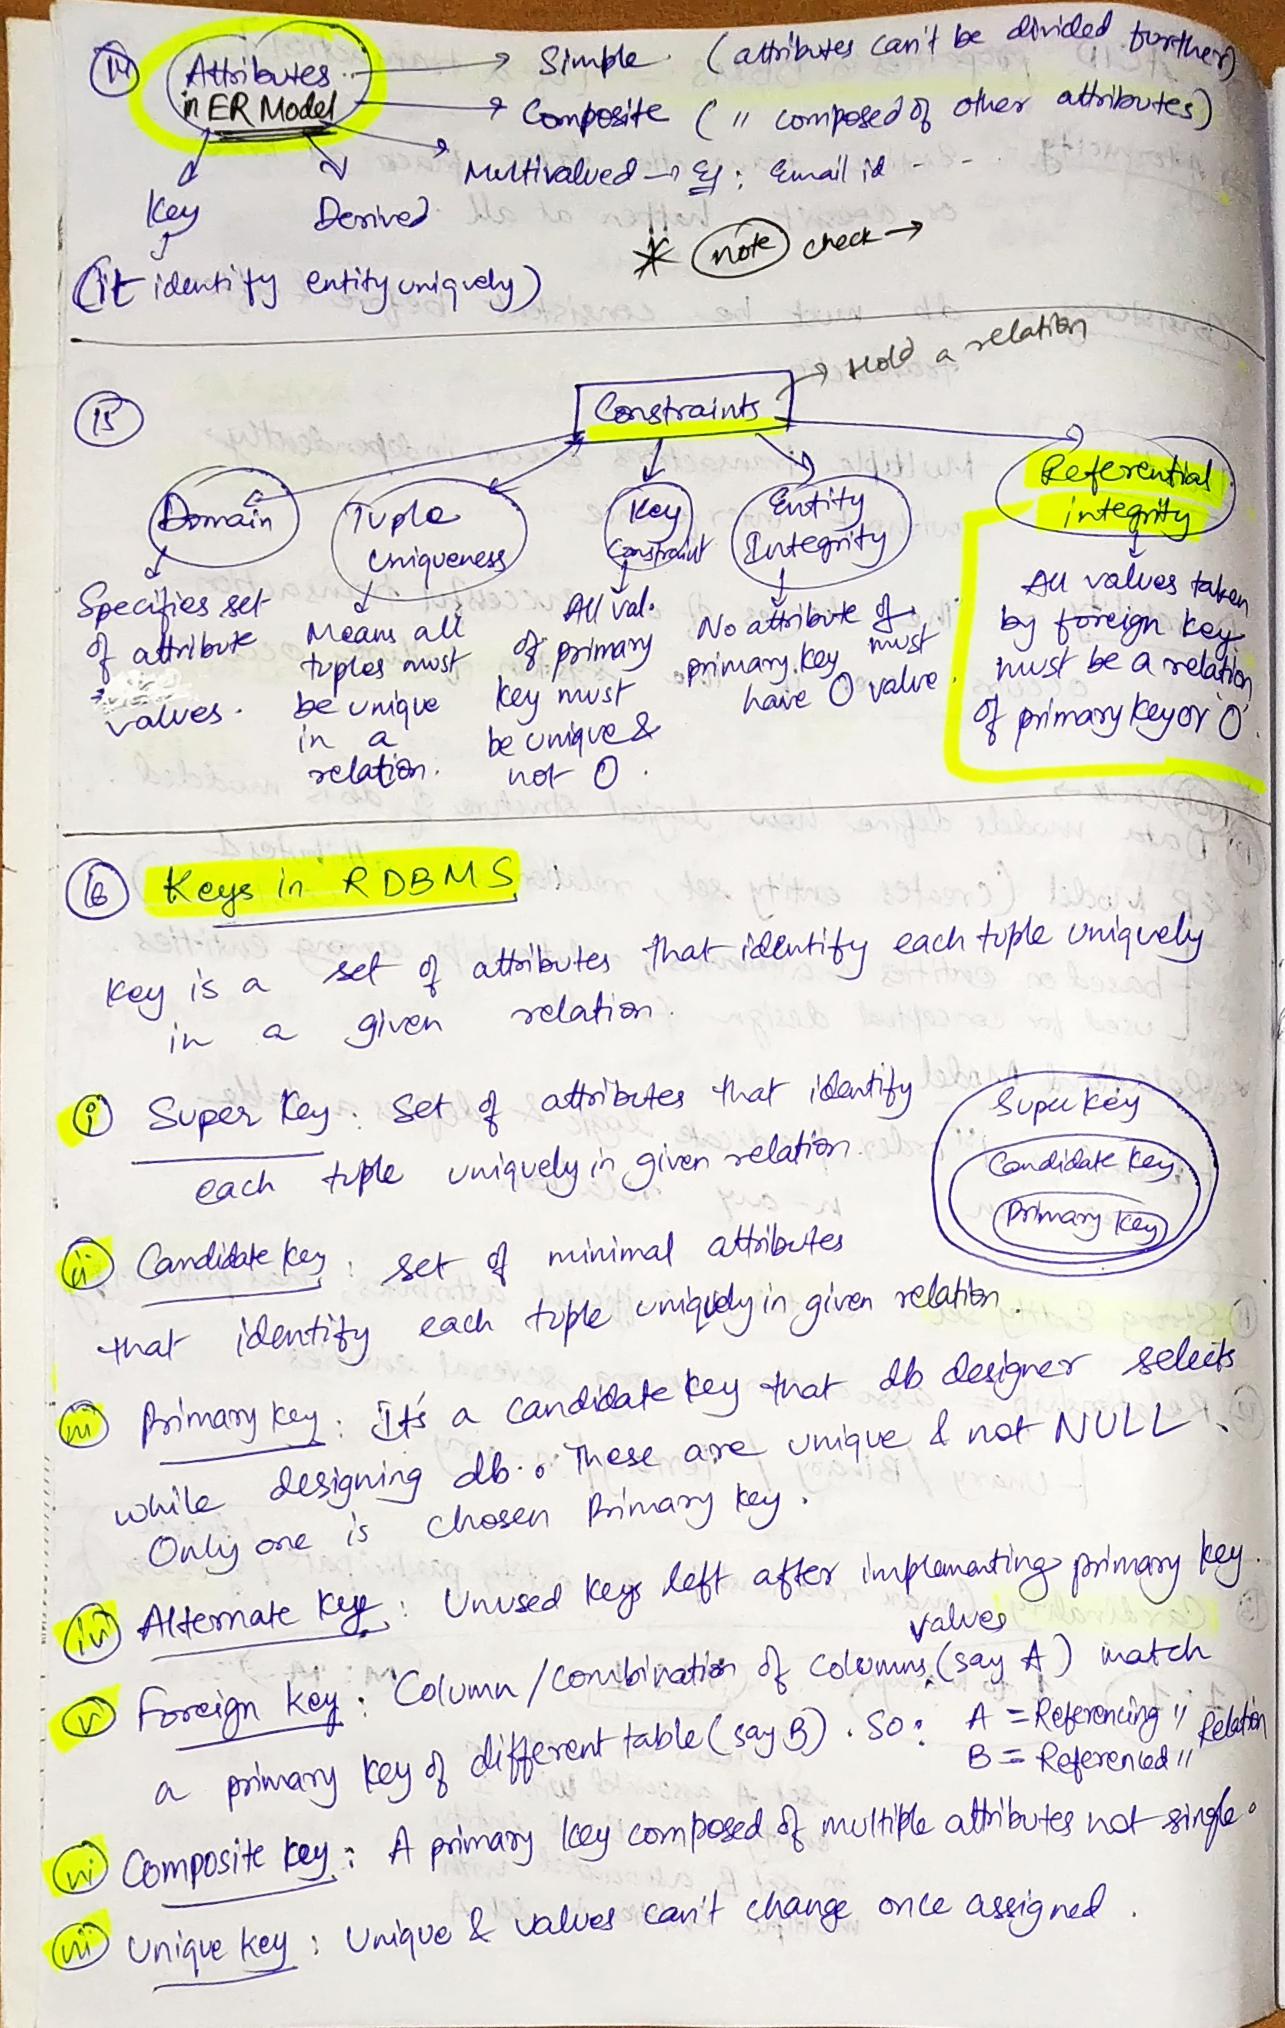 14 Attributes in ER Model
→ Simple (attributes can't be divided further)
→ Composite ( " composed of other attributes)
→ Multivalued → Eg: Email id - - .
Key
Derived
(it identify entity uniquely)
* note check →
15 Constraints → Hold a relation
Domain
Specifies set
of attribute
values.
Tuple
Uniqueness
Means all
tuples must
be unique
in a
relation.
Key
Constraint
All val.
of primary
key must
be unique &
not 0.
Entity
Integrity
No attribute of
primary key must
have 0 value.
Referential
integrity
All values taken
by foreign key
must be a relation
of primary key or 0.
16 Keys in RDBMS
Key is a set of attributes that identify each tuple uniquely
in a given relation.
i Super Key : Set of attributes that identify
each tuple uniquely in given relation.
Super key
Candidate key
Primary key
ii Candidate key : set of minimal attributes
that identify each tuple uniquely in given relation.
iii Primary key : It's a candidate key that db designer selects
while designing db. These are unique & not NULL.
Only one is chosen Primary key.
iv Alternate key : Unused keys left after implementing primary key.
v Foreign key : Column/combination of columns values (say A) match
a primary key of different table (say B). So: A = Referencing " Relation
B = Referenced "
vi Composite key : A primary key composed of multiple attributes not single.
vii Unique key : Unique & values can't change once assigned.